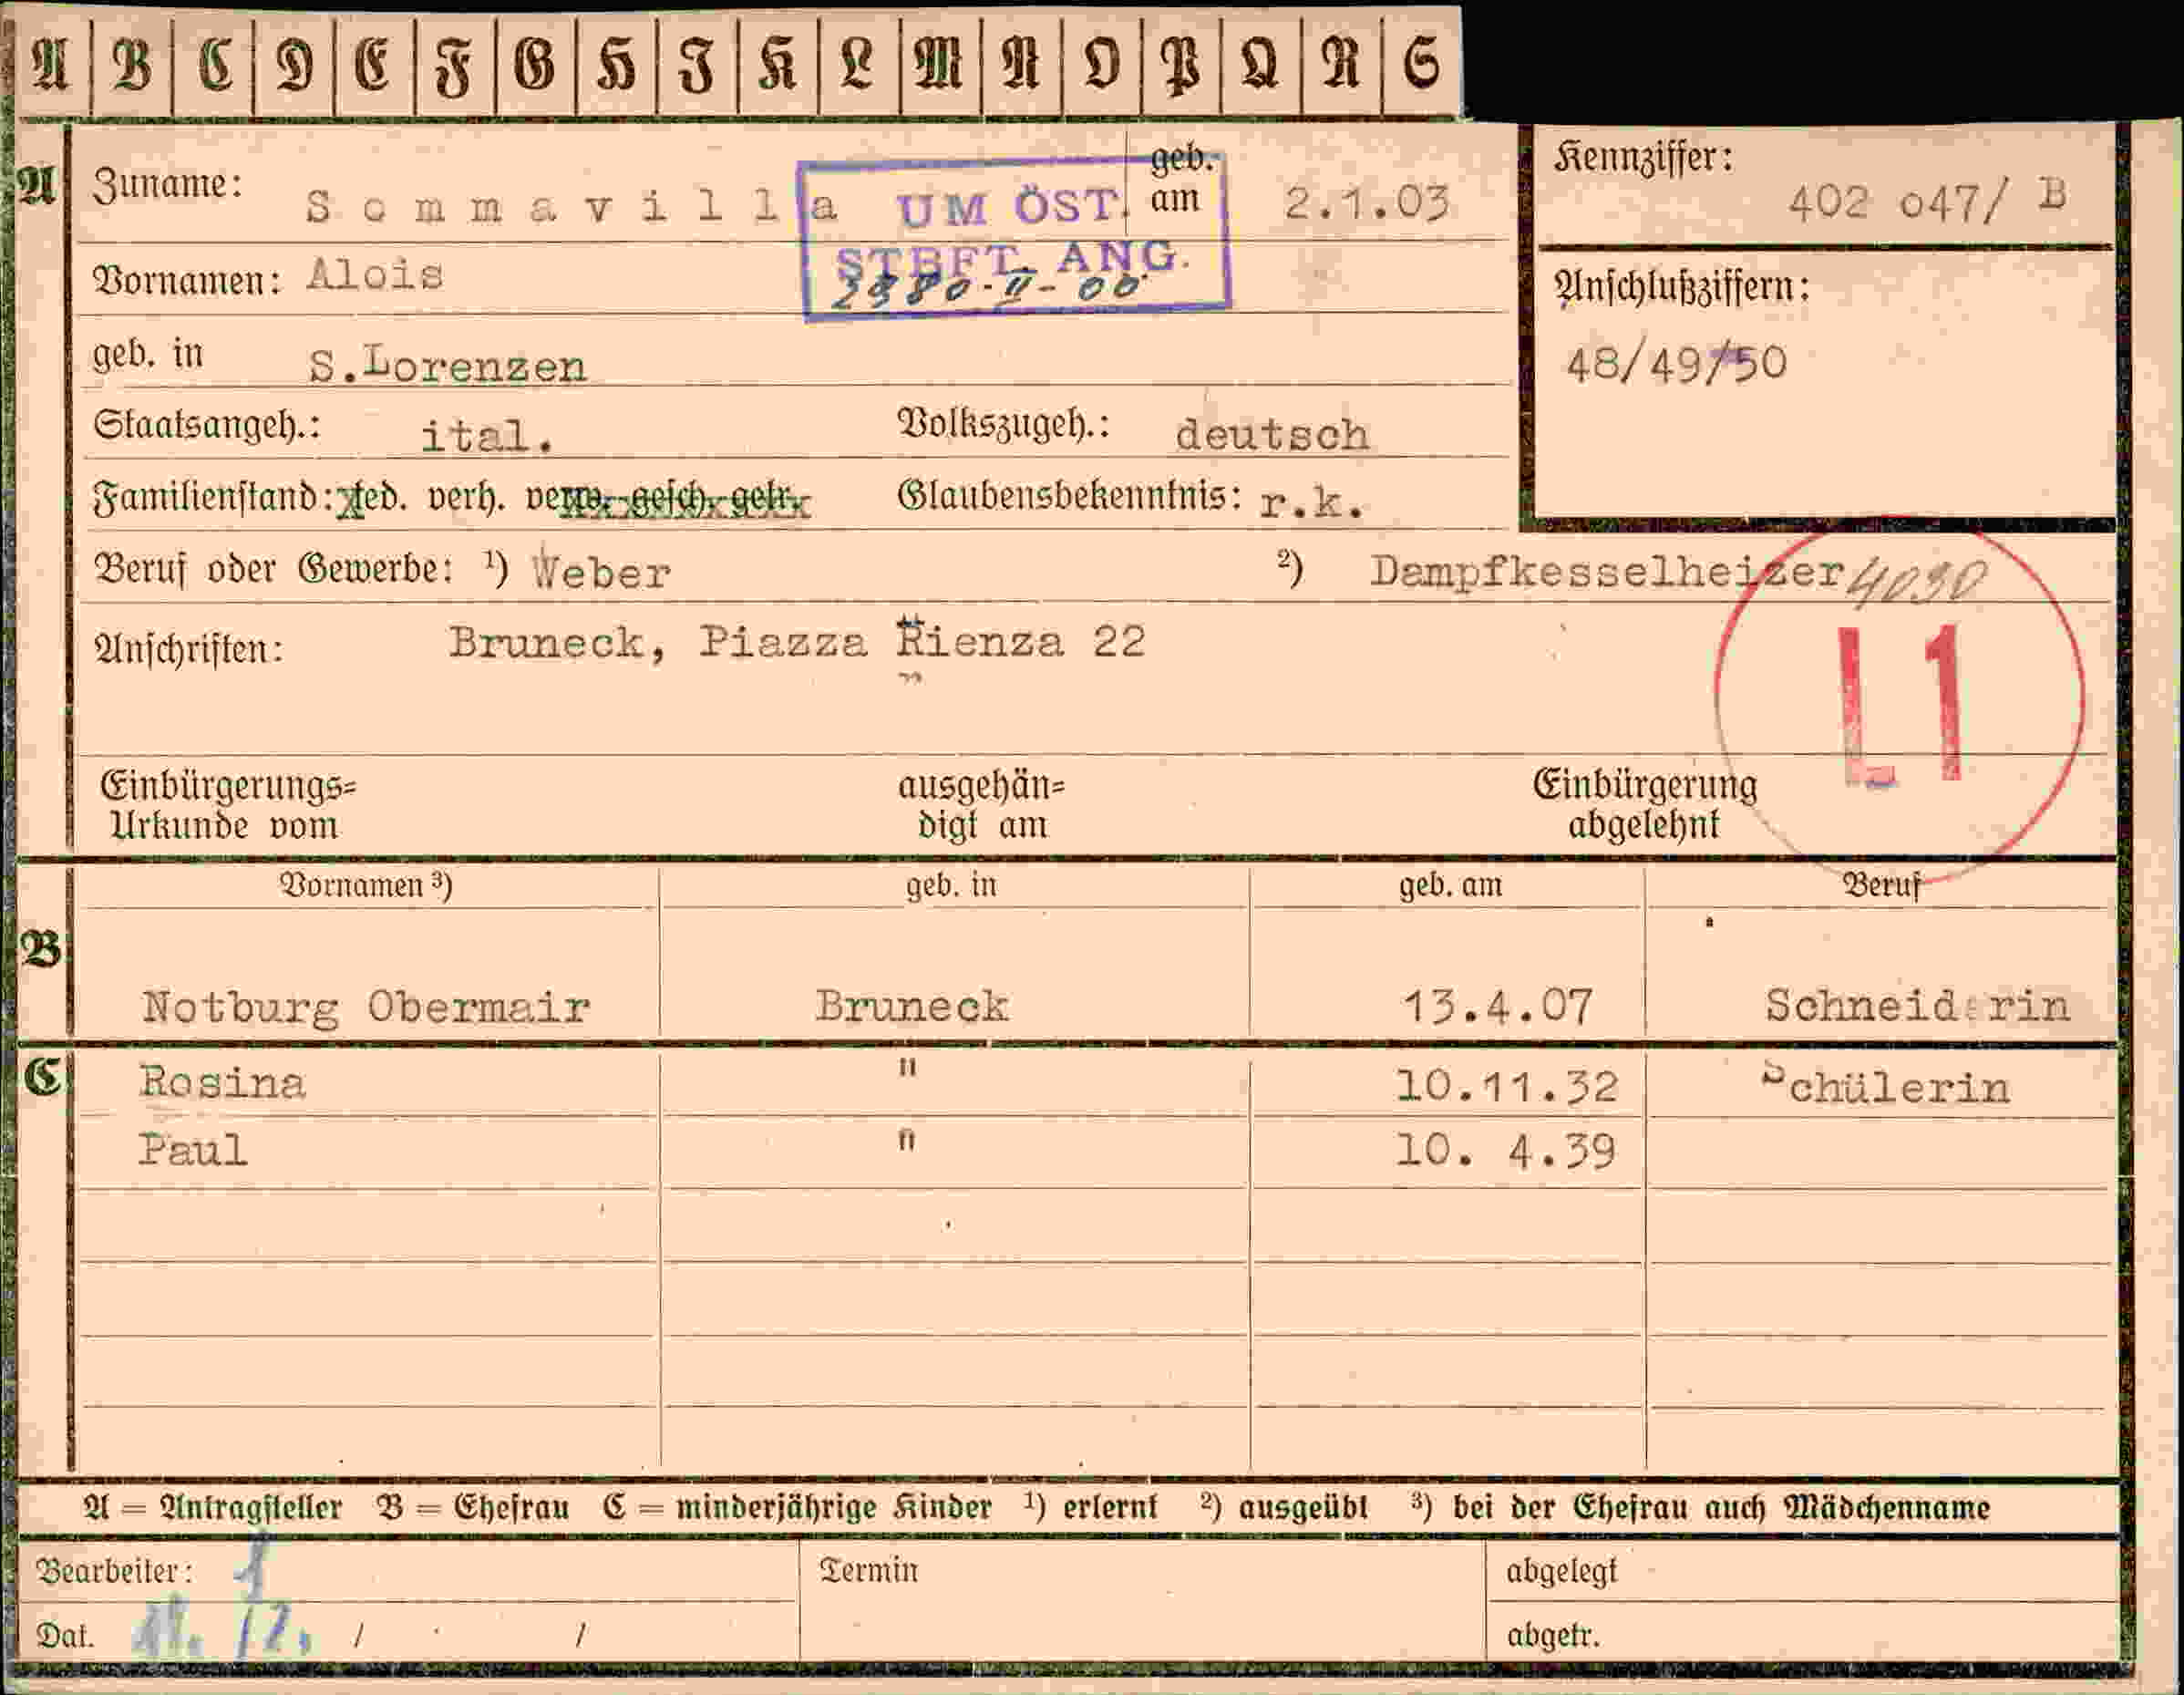 A B C D E F G H I K L M N O P Q R S
A Zuname: Sommavilla geb. am 2.1.03
UM ÖST.
STBFT. ANG.
2380-II-00
Kennziffer: 402 o47/ B
Vornamen: Alois
Anschlußziffern:
48/49/50
geb. in S.Lorenzen
Staatsangeh.: ital. Volkszugeh.: deutsch
Familienstand: led. verh. verw. gesch. getr. Glaubensbekenntnis: r.k.
Beruf oder Gewerbe: ¹) Weber ²) Dampfkesselheizer 4030
Anschriften: Bruneck, Piazza Rienza 22
L1
Einbürgerungs= ausgehän= Einbürgerung
Urkunde vom digt am abgelehnt
Vornamen ³) geb. in geb. am Beruf
B
Notburg Obermair Bruneck 13.4.07 Schneiderin
C Rosina " 10.11.32 Schülerin
Paul " 10. 4.39
A = Antragsteller B = Ehefrau C = minderjährige Kinder ¹) erlernt ²) ausgeübt ³) bei der Ehefrau auch Mädchenname
Bearbeiter: Termin abgelegt
Dat. 12. / / abgetr.